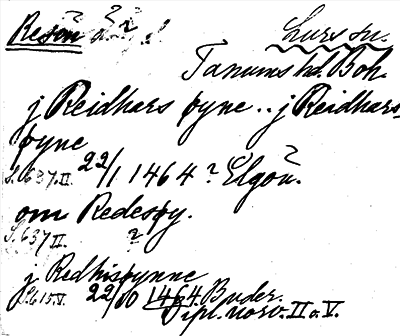 Resön Lurs sn.
Tanums hd. Boh.
j Reidhars øyne .. j Reidhars
øyne
S. 637. II. 22/1 1464? Elgön.
om Redesøy.
S. 637 II. ?
j Redhisøynne
S. 615. V. 22/10 1464. Buder.
Dipl. norv. II o V.